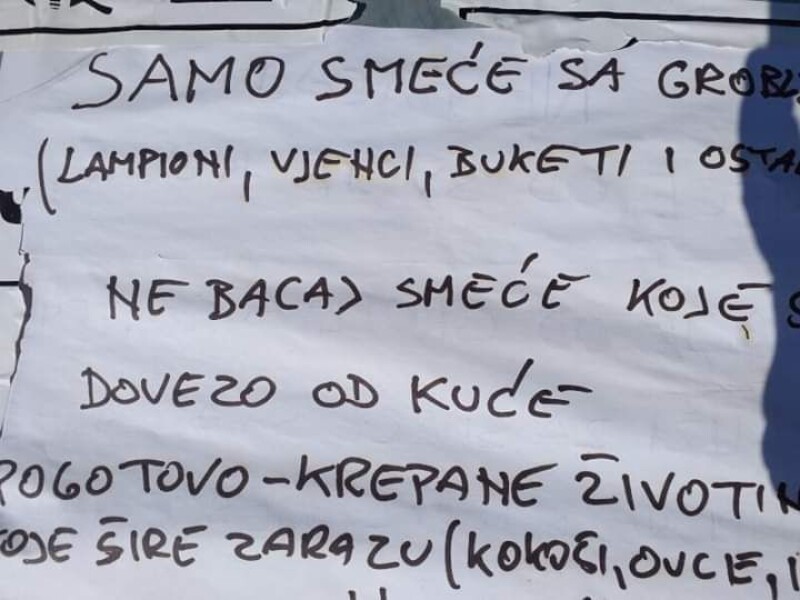 SAMO SMEĆE SA GROBL
(LAMPIONI, VJENCI, BUKETI I OSTA
NE BACAJ SMEĆE KOJE S
DOVEZO OD KUĆE
POGOTOVO - KREPANE ŽIVOTIN
OJE ŠIRE ZARAZU (KOKOŠI, OVCE, I